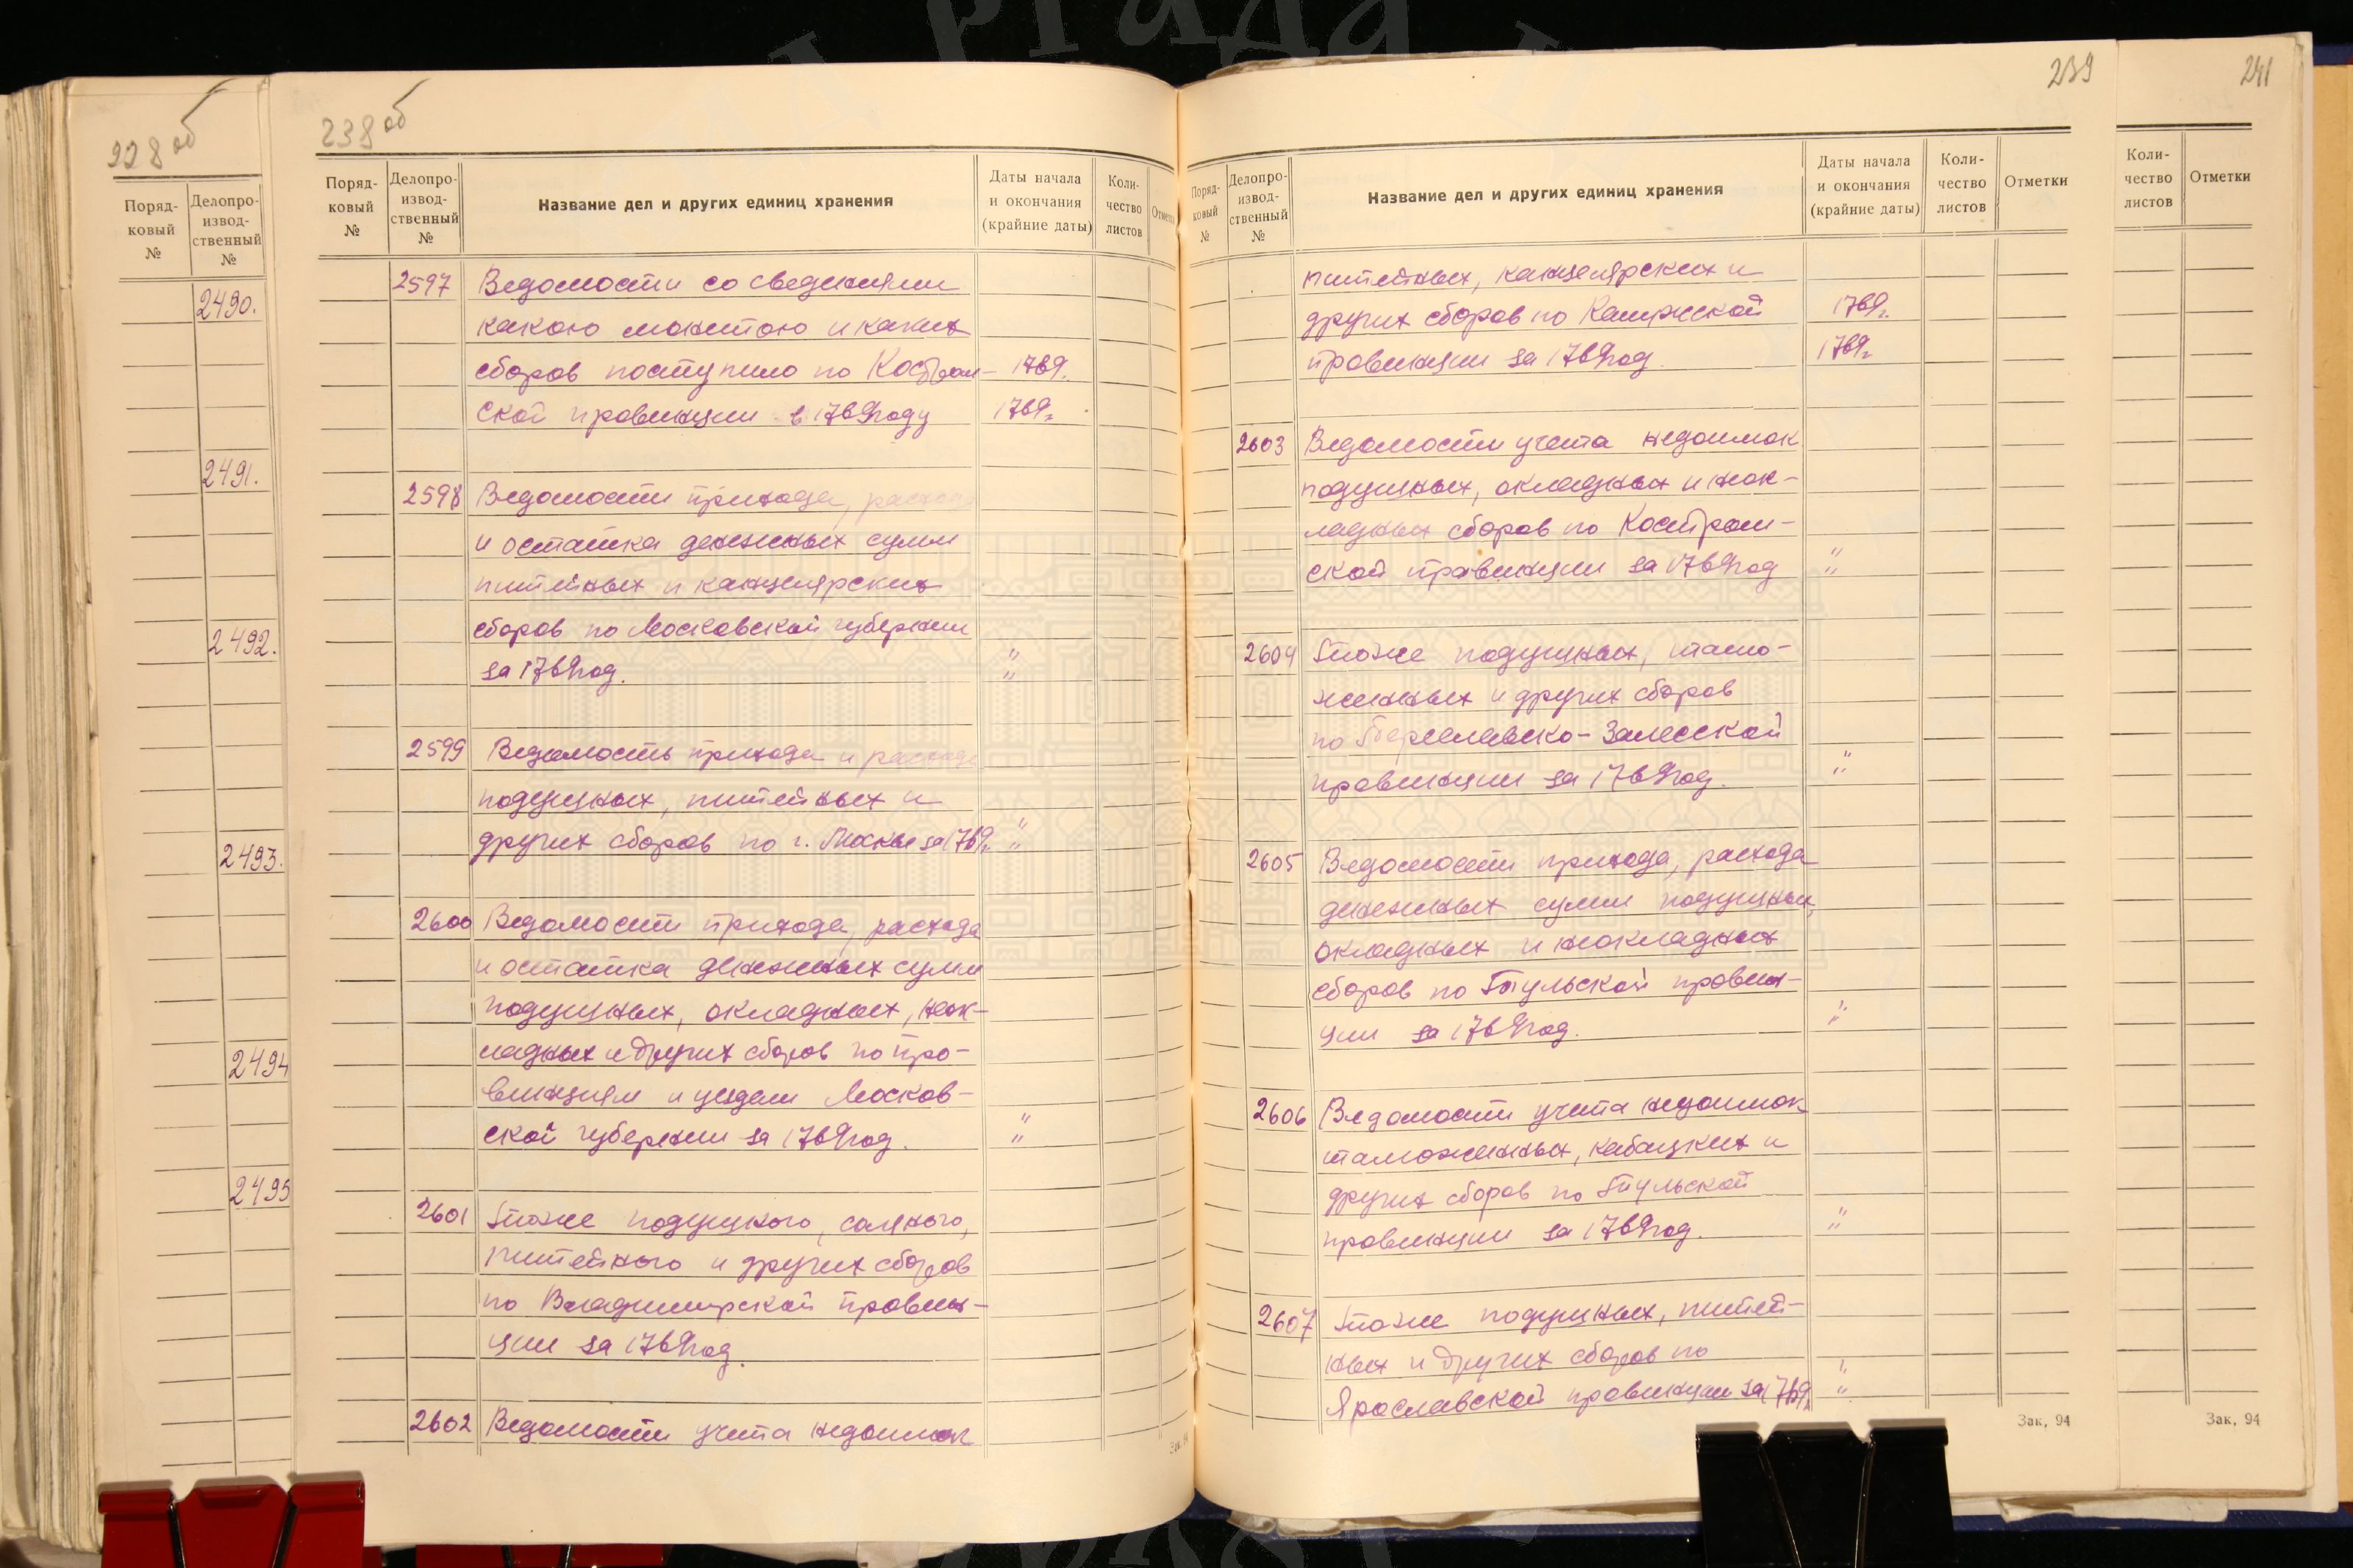 228 об
Поряд-
ковый
№
Делопро-
извод-
ственный
№
2490.
2491.
2492.
2493.
2494
2495
238 об
Поряд-
ковый
№
Делопро-
извод-
ственный
№
Название дел и других единиц хранения
Даты начала
и окончания
(крайние даты)
Коли-
чество
листов
2597 Ведомости со сведениями
какою монетою и каких
сборов поступило по Костром- 1769.
ской провинции в 1769 году 1769г.
2598 Ведомости прихода, расхода
и остатка денежных сумм
питейных и канцелярских
сборов по Московской губернии
за 1769 год. " "
2599 Ведомость прихода и расхода
подушных, питейных и
других сборов по г. Москве за 1769г. " "
2600 Ведомости прихода, расхода
и остатка денежных сумм
подушных, окладных, неок-
ладных и других сборов по про-
винциям и уездам Москов-
ской губернии за 1769 год. " "
2601 То же подушного, соляного,
питейного и других сборов
по Владимирской провин-
ции за 1769 год.
2602 Ведомости учета недоимок
239
Поряд-
ковый
№
Делопро-
извод-
ственный
№
Название дел и других единиц хранения
Даты начала
и окончания
(крайние даты)
Коли-
чество
листов
Отметки
питейных, канцелярских и
других сборов по Каширской 1769г.
провинции за 1769 год. 1769г.
2603 Ведомости учета недоимок
подушных, окладных и неок-
ладных сборов по Костром-
ской провинции за 1769 год " "
2604 То же подушных, тамо-
женных и других сборов
по Переславско-Залесской
провинции за 1769 год. " "
2605 Ведомости прихода, расхода
денежных сумм подушных,
окладных и неокладных
сборов по Тульской провин-
ции за 1769 год. " "
2606 Ведомости учета недоимок
таможенных, кабацких и
других сборов по Тульской
провинции за 1769 год. " "
2607 То же подушных, питей-
ных и других сборов по
Ярославской провинции за 1769г. " "
Зак. 94
241
Коли-
чество
листов
Отметки
Зак. 94